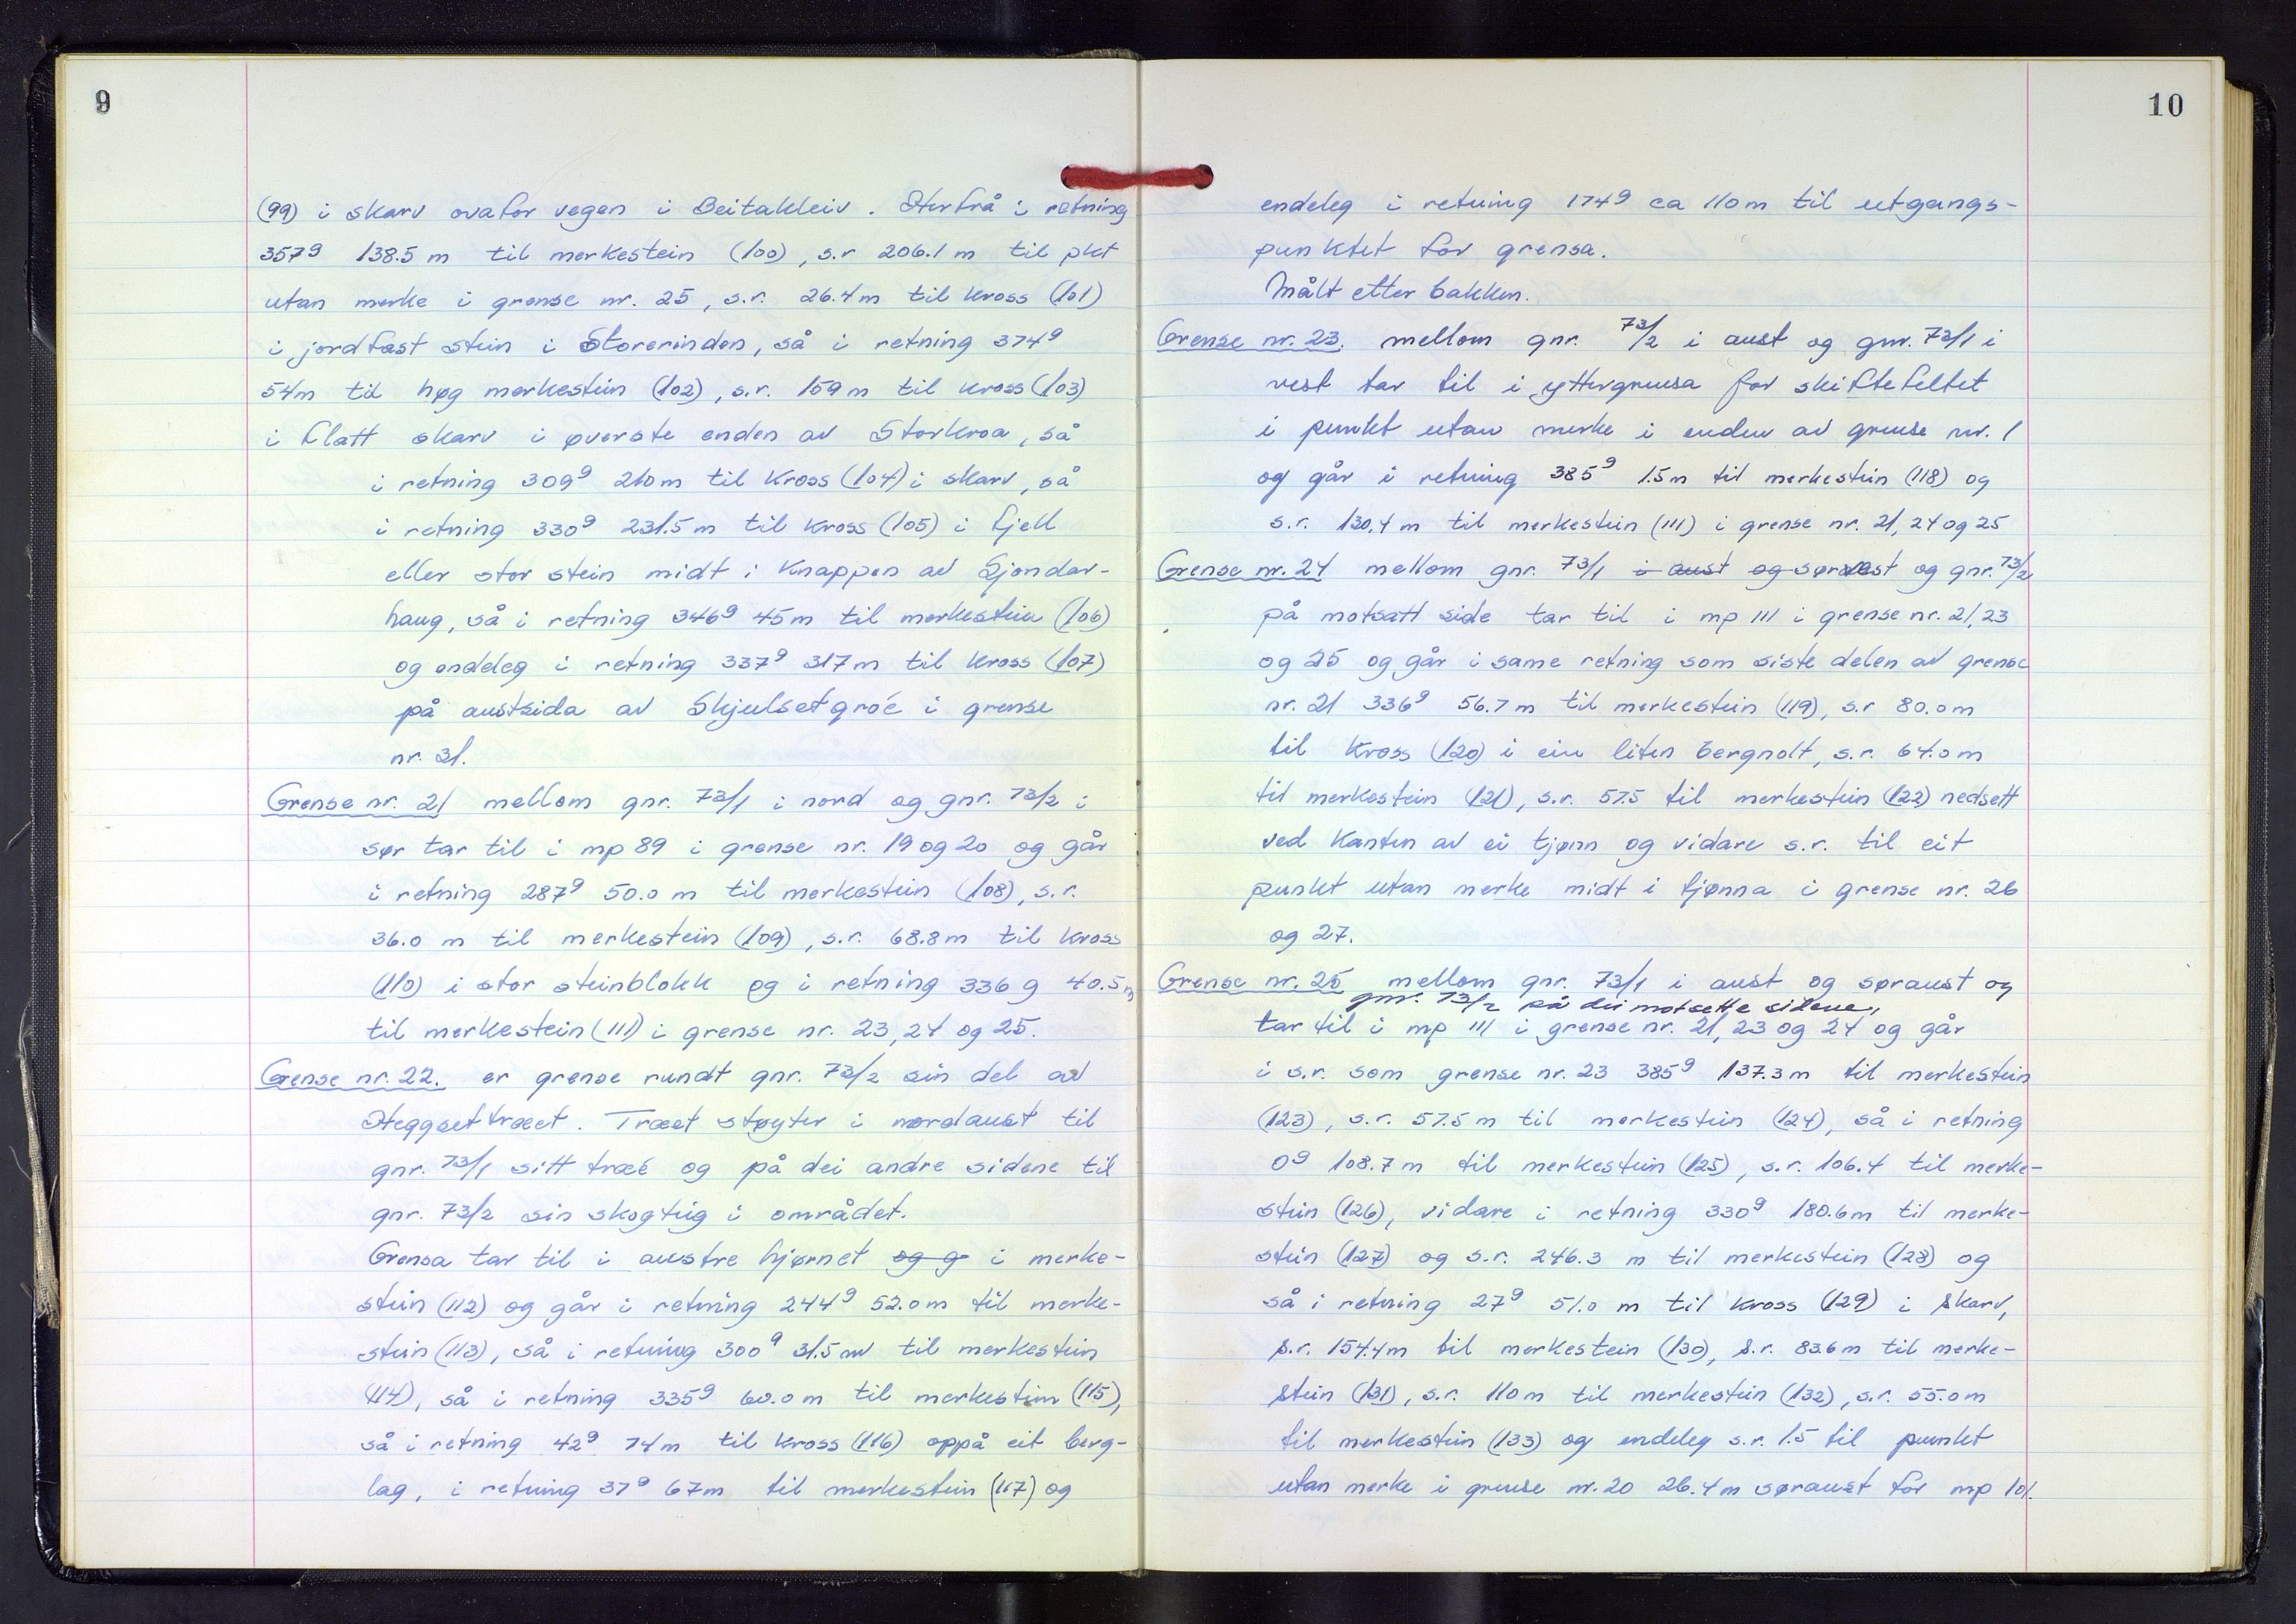 9
(99) i skarv ovafor vegen i Beitakleiv. Herfrå i retning
357g 138.5 m til merkestein (100), s.r 206.1 m til pkt
utan merke i grense nr. 25, s.r. 26.4 m til kross (101)
i jordfast stein i Storerinden, så i retning 374g
54m til høg merkestein (102), s.r. 159 m til kross (103)
i flatt skarv i øverste enden av Storkroa, så
i retning 309g 210m til Kross (104) i skarv, så
i retning 330g 231.5 m til kross (105) i fjell
eller stor stein midt i Knappen av Gjondar-
haug, så i retning 346g 45m til merkestein (106)
og endeleg i retning 337g 317m til kross (107)
på austsida av Skjulsetgróe i grense
nr. 31.
Grense nr. 21 mellom gnr. 73/1 i nord og gnr. 73/2 i
sør tar til i mp 89 i grense nr. 19 og 20 og går
i retning 287g 50.0 m til merkestein (108), s.r.
36.0 m til merkestein (109), s.r. 68.8m til kross
(110) i stor steinblokk og i retning 336 g 40.5 m
til merkestein (111) i grense nr. 23, 24 og 25.
Grense nr. 22. er grense rundt gnr. 73/2 sin del av
Heggsettræet. Træet støyter i nordaust til
gnr. 73/1 sitt træé og på dei andre sidene til
gnr. 73/2 sin skogteig i området.
Grensa tar til i austre hjørnet og g i merke-
stein (112) og går i retning 244g 52.0m til merke-
stein (113), så i retning 300g 31.5 m til merkestein
(114), så i retning 335g 60.0m til merkestein (115),
så i retning 42g 74m til kross (116) oppå eit berg-
lag, i retning 37g 67m til merkestein (117) og
10
endeleg i retning 174g ca 110m til utgangs-
punktet for grensa.
Målt etter bakken.
Grense nr. 23. mellom gnr. 73/2 i aust og gnr. 73/1 i
vest tar til i yttergrensa for skiftefeltet
i punkt utan merke i enden av grense nr. 1
og går i retning 385g 1.5m til merkestein (118) og
s.r. 130.4 m til merkestein (111) i grense nr. 21, 24 og 25
Grense nr. 24 mellom gnr. 73/1 i aust og sørvest og gnr. 73/2
på motsatt side tar til i mp 111 i grense nr. 21, 23
og 25 og går i same retning som siste delen av grense
nr. 21 336g 56.7 m til merkestein (119), s.r 80.0m
til Kross (120) i ein liten bergnolt, s.r. 64.0m
til merkestein (121), s.r. 57.5 til merkestein (122) nedsett
ved kanten av ei tjønn og vidare s.r. til eit
punkt utan merke midt i tjønna i grense nr. 26
og 27.
Grense nr. 25 mellom gnr. 73/1 i aust og søraust og
gnr. 73/2 på dei motsette sidene,
tar til i mp 111 i grense nr. 21, 23 og 24 og går
i s.r. som grense nr. 23 385g 137.3m til merkestein
(123), s.r. 57.5 m til merkestein (124), så i retning
0g 108.7 m til merkestein (125), s.r. 106.4 til merke-
stein (126), vidare i retning 330g 180.6m til merke-
stein (127) og s.r. 246.3 m til merkestein (128) og
så i retning 27g 51.0 m til kross (129) i skarv,
s.r. 154.4m til merkestein (130), s.r. 83.6m til merke-
stein (131), s.r. 110m til merkestein (132), s.r. 55.0m
til merkestein (133) og endeleg s.r. 1.5 til punkt
utan merke i grense nr. 20 26.4 m søraust for mp 101.